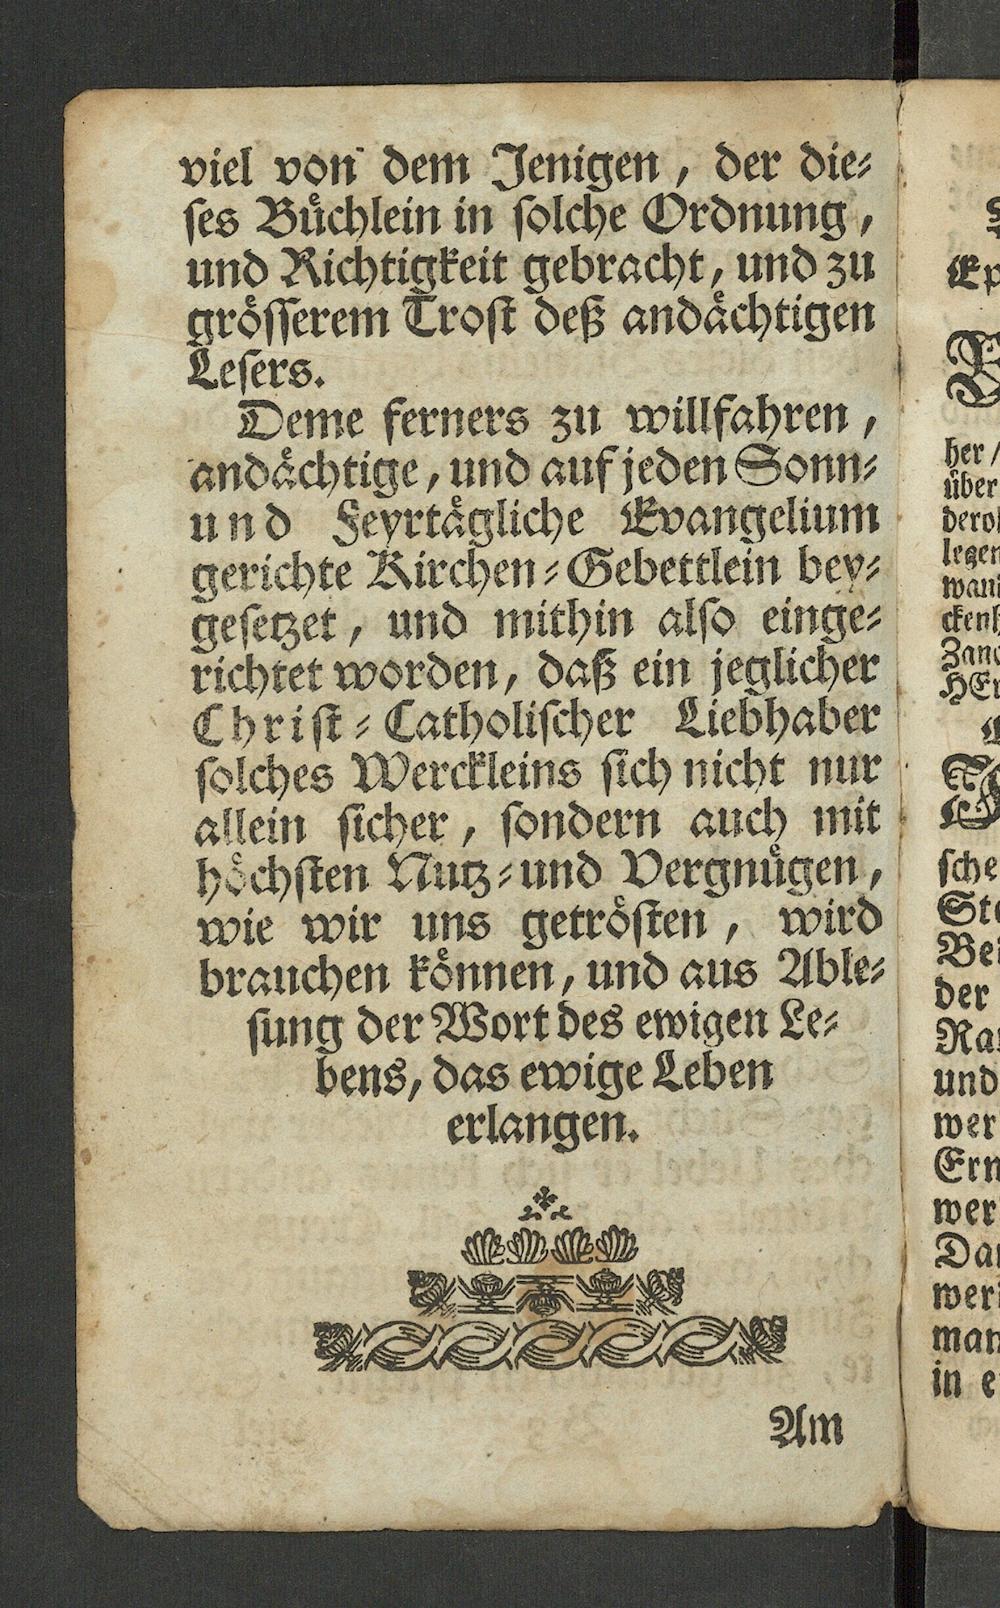 viel von dem Jenigen, der die⸗
ses Büchlein in solche Ordnung,
und Richtigkeit gebracht, und zu
grösserem Trost deß andächtigen
Lesers.
Deme ferners zu willfahren,
andächtige, und auf jeden Sonn⸗
und Feyrtägliche Evangelium
gerichte Kirchen⸗Gebettlein bey⸗
gesetzet, und mithin also einge⸗
richtet worden, daß ein jeglicher
Christ⸗Catholischer Liebhaber
solches Werckleins sich nicht nur
allein sicher, sondern auch mit
höchsten Nutz⸗und Vergnügen,
wie wir uns getrösten, wird
brauchen können, und aus Able⸗
sung der Wort des ewigen Le⸗
bens, das ewige Leben
erlangen.
Am
Ep
her/
über
dero
legen
wan
ckenh
Zanc
HEr
sche
Sta
Bei
der
Ra
und
wer
Ern
wer
Dar
wer
man
in e